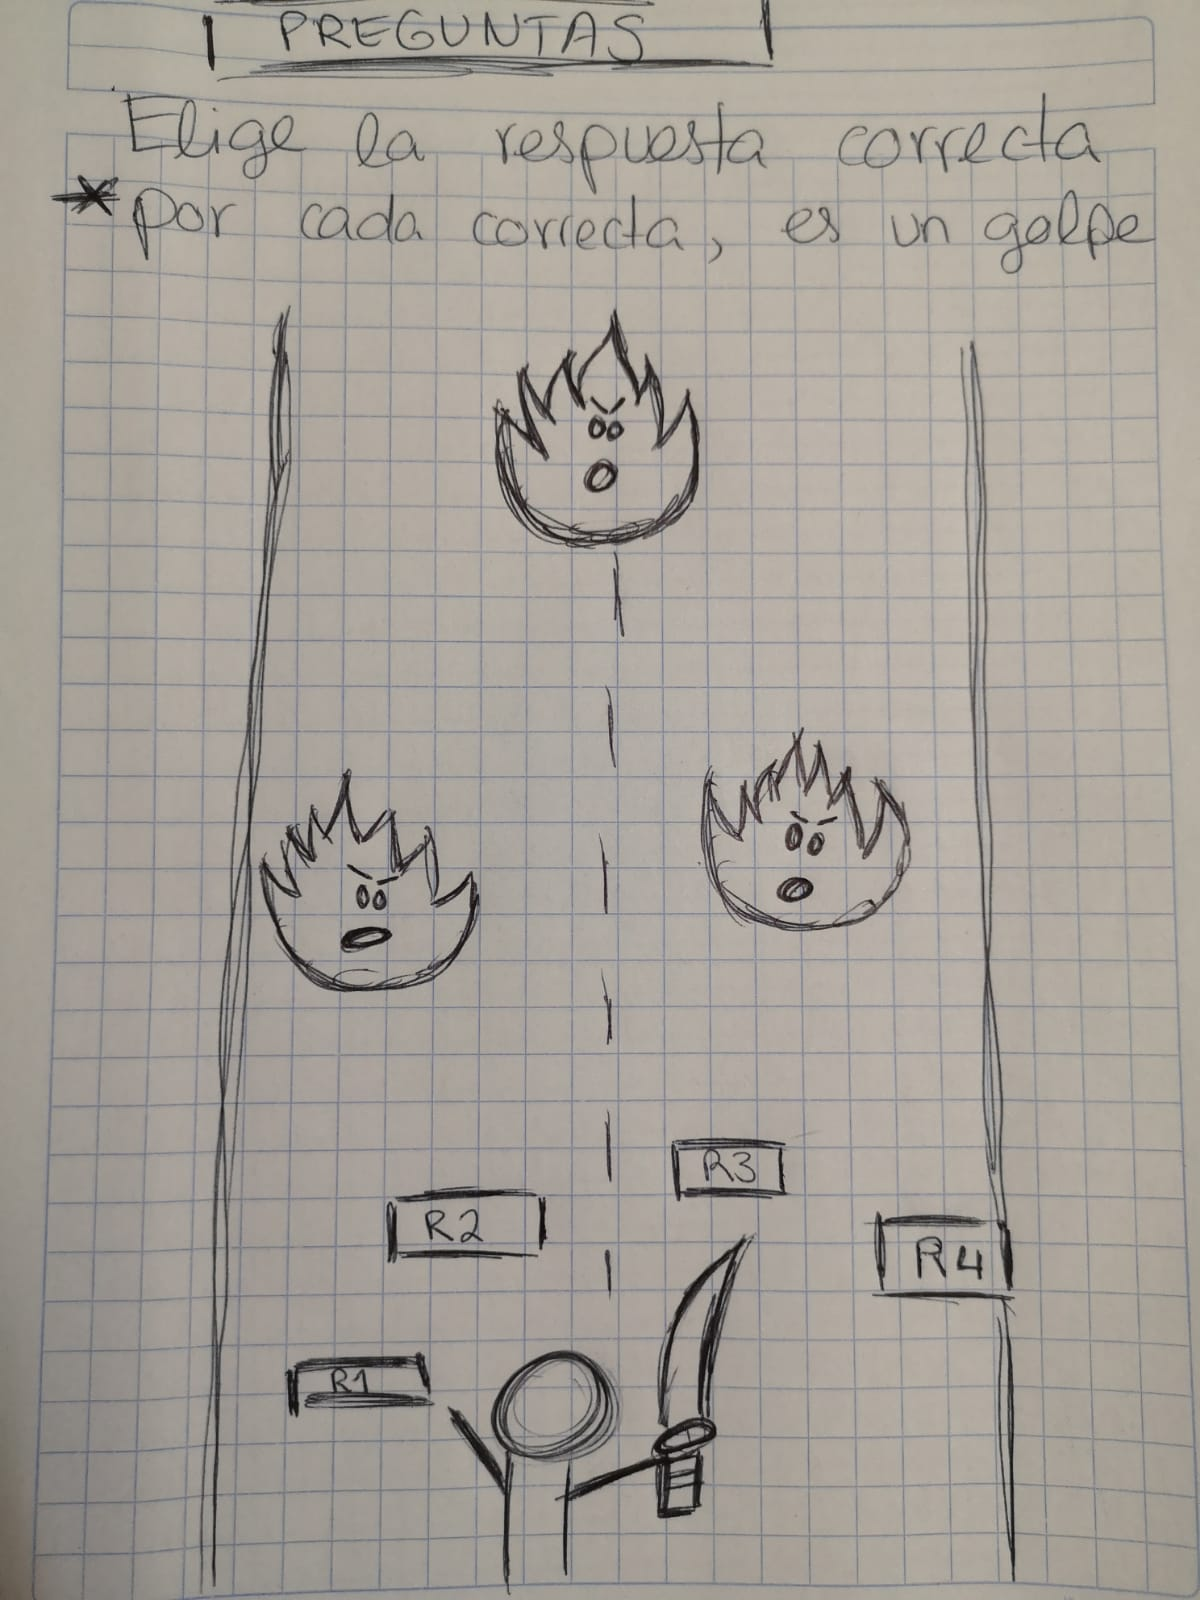 PREGUNTAS
Elige la respuesta correcta
* por cada correcta, es un golpe
R3
R2
R4
R1